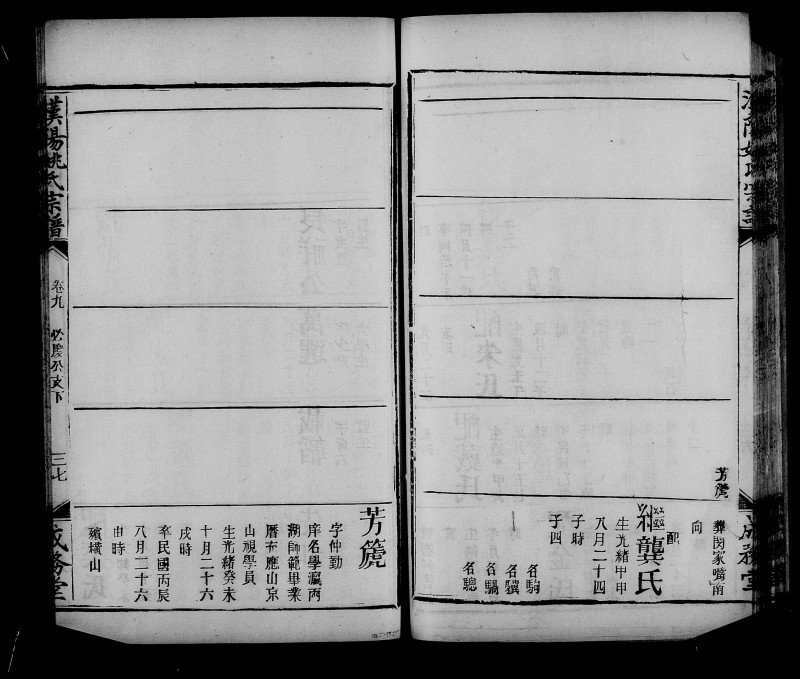 芳篪
葬閔家嘴南
向
配
継龔氏
生光緒甲申
八月二十四
子時
子四
名駒
名驥
名驕
名驄
漢陽姚氏宗譜
卷九
必慶公支下
三七
成務堂
芳篪
字仲勤
庠名學瀛丙
湖師範畢業
曆充應山京
山視學員
生光緒癸未
十月二十六
戌時
卒民國丙辰
八月二十六
申時
殯墳山